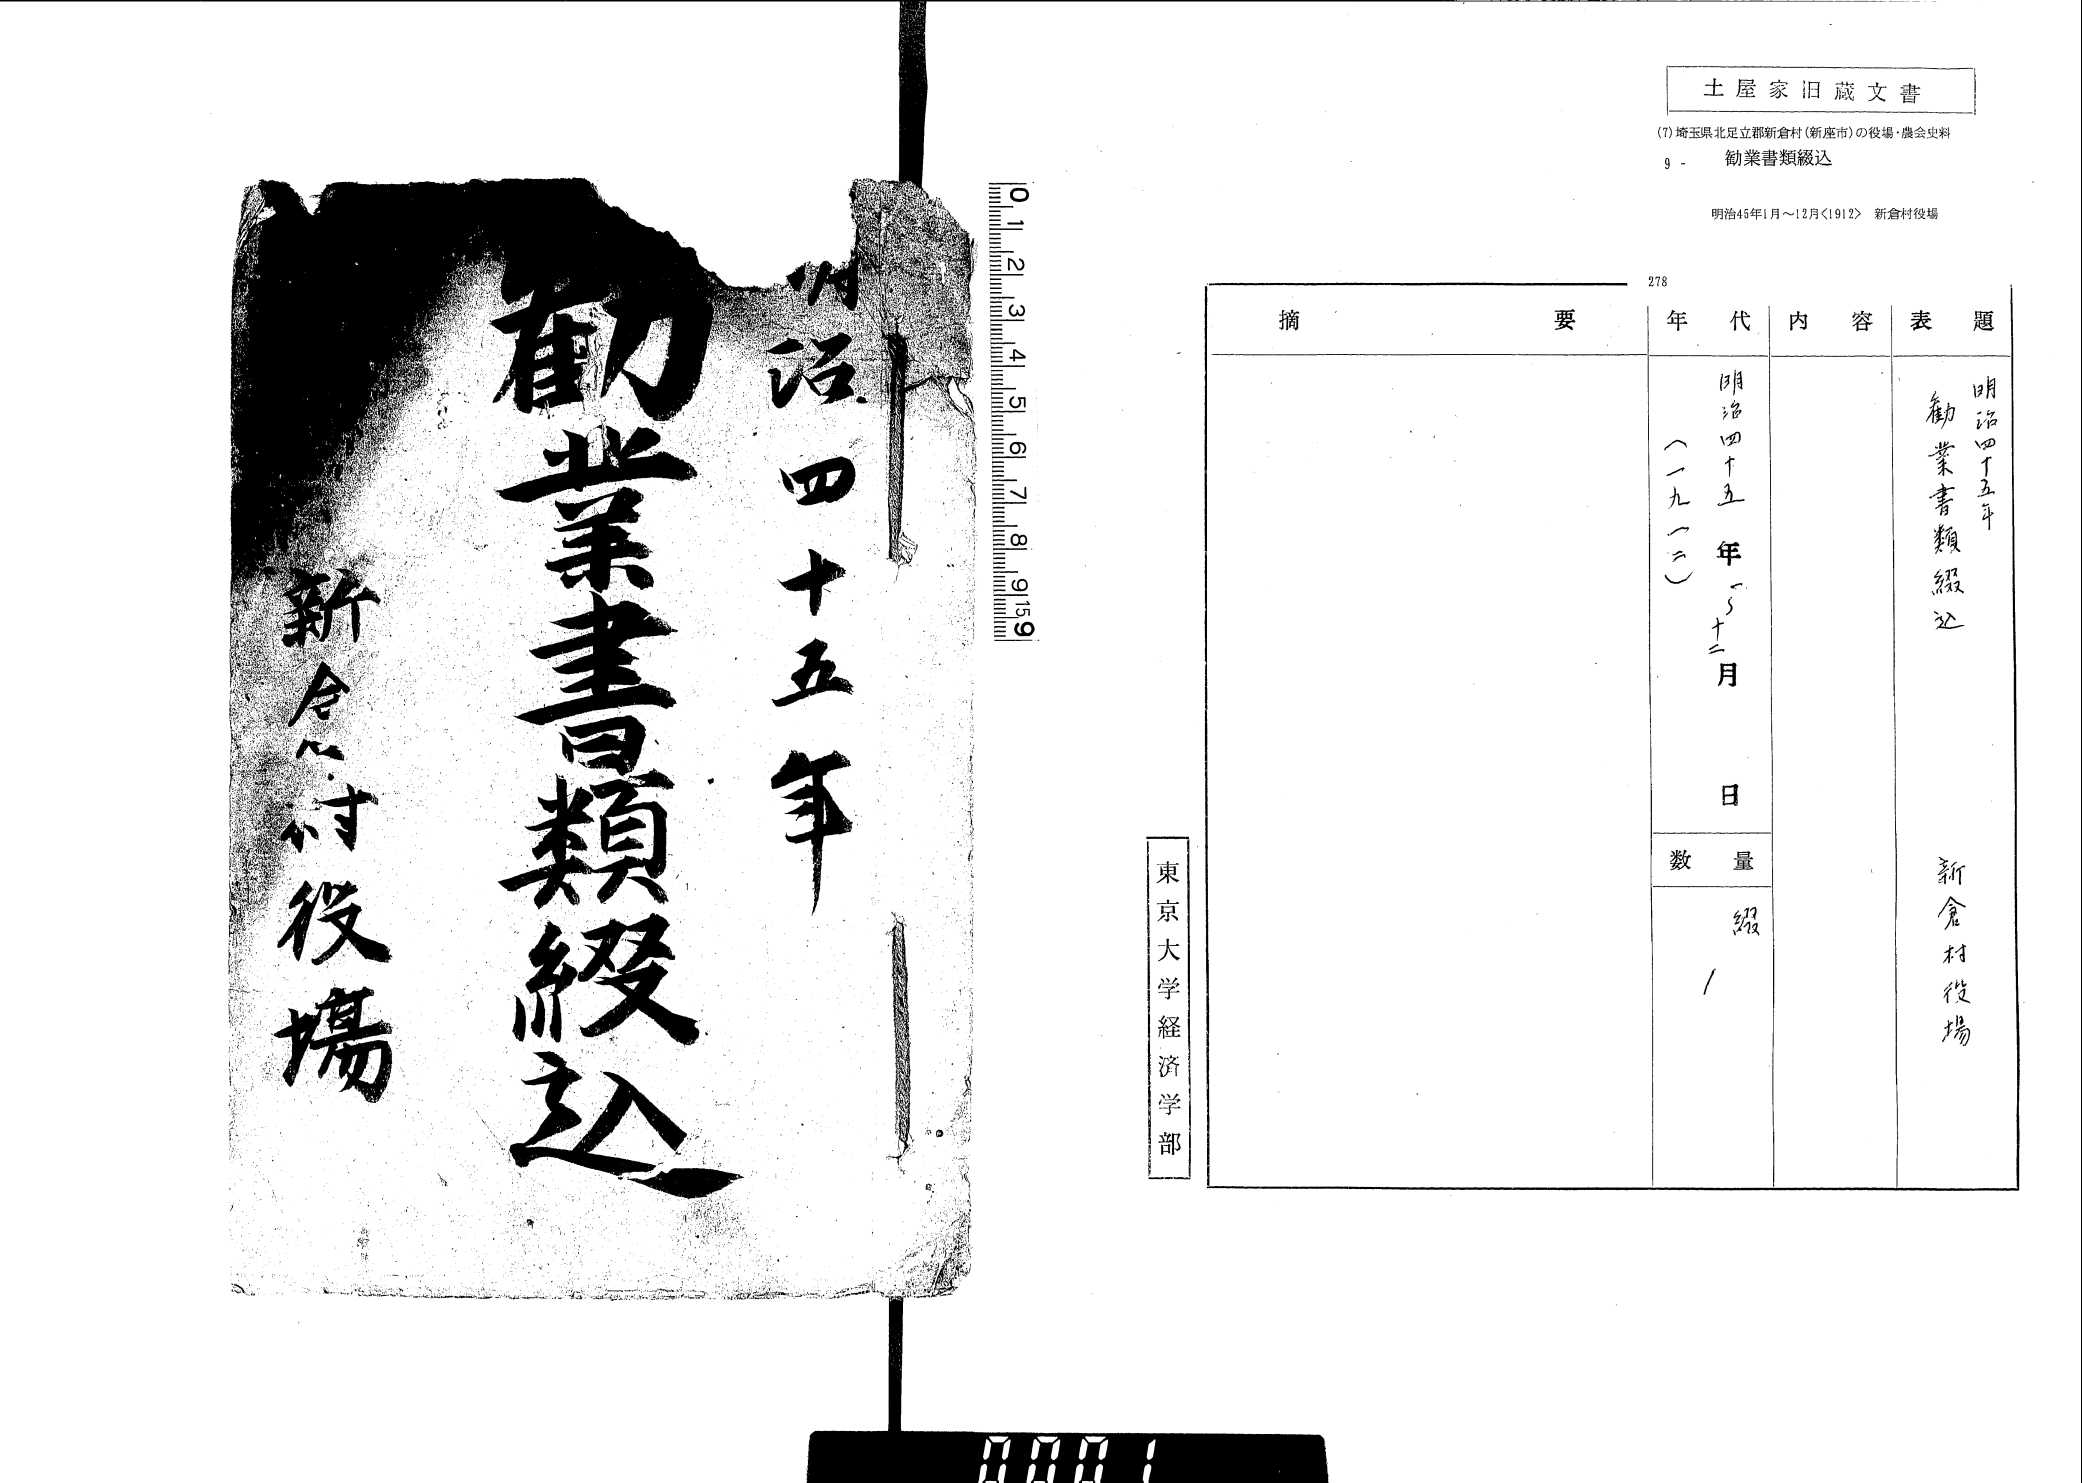 土屋家旧蔵文書
(7)埼玉県北足立郡新倉村(新座市)の役場・農会史料
9 - 勧業書類綴込
明治45年1月～12月<1912> 新倉村役場
278
表題
内容
年代
摘要
明治四十五年
勧業書類綴込
新倉村役場
明治四十五年一〜十二月 日
(一九一二)
数量
綴
1
東京大学経済学部
0 1 2 3 4 5 6 7 8 9 15 9
明治四十五年
勸業書類綴込
新倉村役場
0001